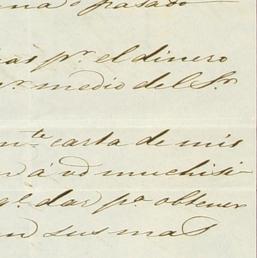 pasado
as pr. el dinero
pr. medio del Sr.
te. carta de mis
n á vd muchisi-
qe. dar pa. obtener
n sus mas